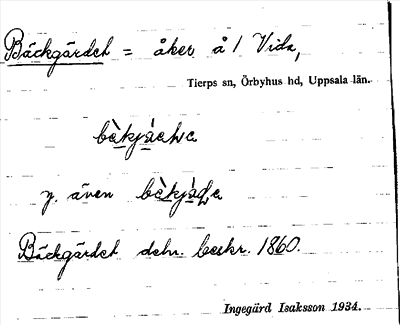 Bäckgärdet = åker å / Vida,
Tierps sn, Örbyhus hd, Uppsala län.
y. även
Bäckgärdet dehr. beskr. 1860.
Ingegärd Isaksson 1934.